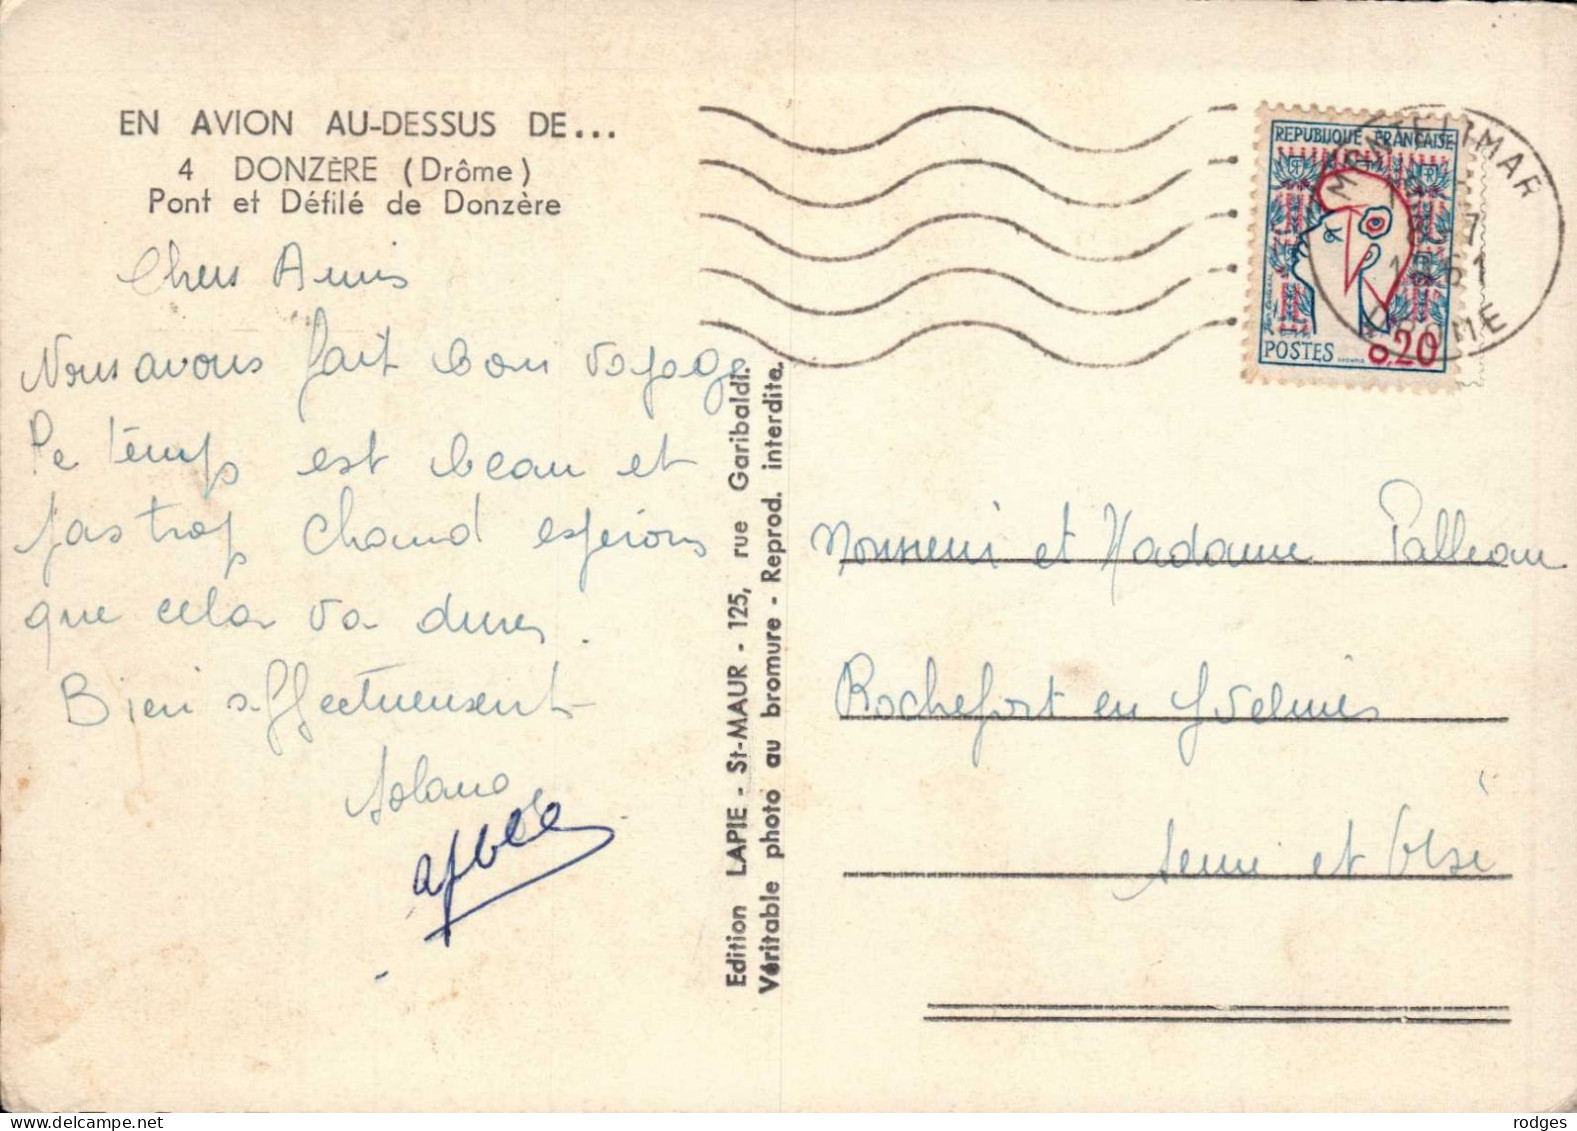 EN AVION AU-DESSUS DE...
4 DONZÈRE (Drôme)
Pont et Défilé de Donzère
Chers Amis
Nous avons fait bon voyage
Le temps est beau et
pas trop chaud espérons
que cela va durer.
Bien affectueusement
Edition LAPIE - St-MAUR - 125, rue Garibaldi.
Véritable photo au bromure - Reprod. interdite.
REPUBLIQUE FRANÇAISE
POSTES 0,20
MONTELIMAR
1961
DROME
Monsieur et Madame
Rochefort en Yvelines
Seine et Oise
rodges